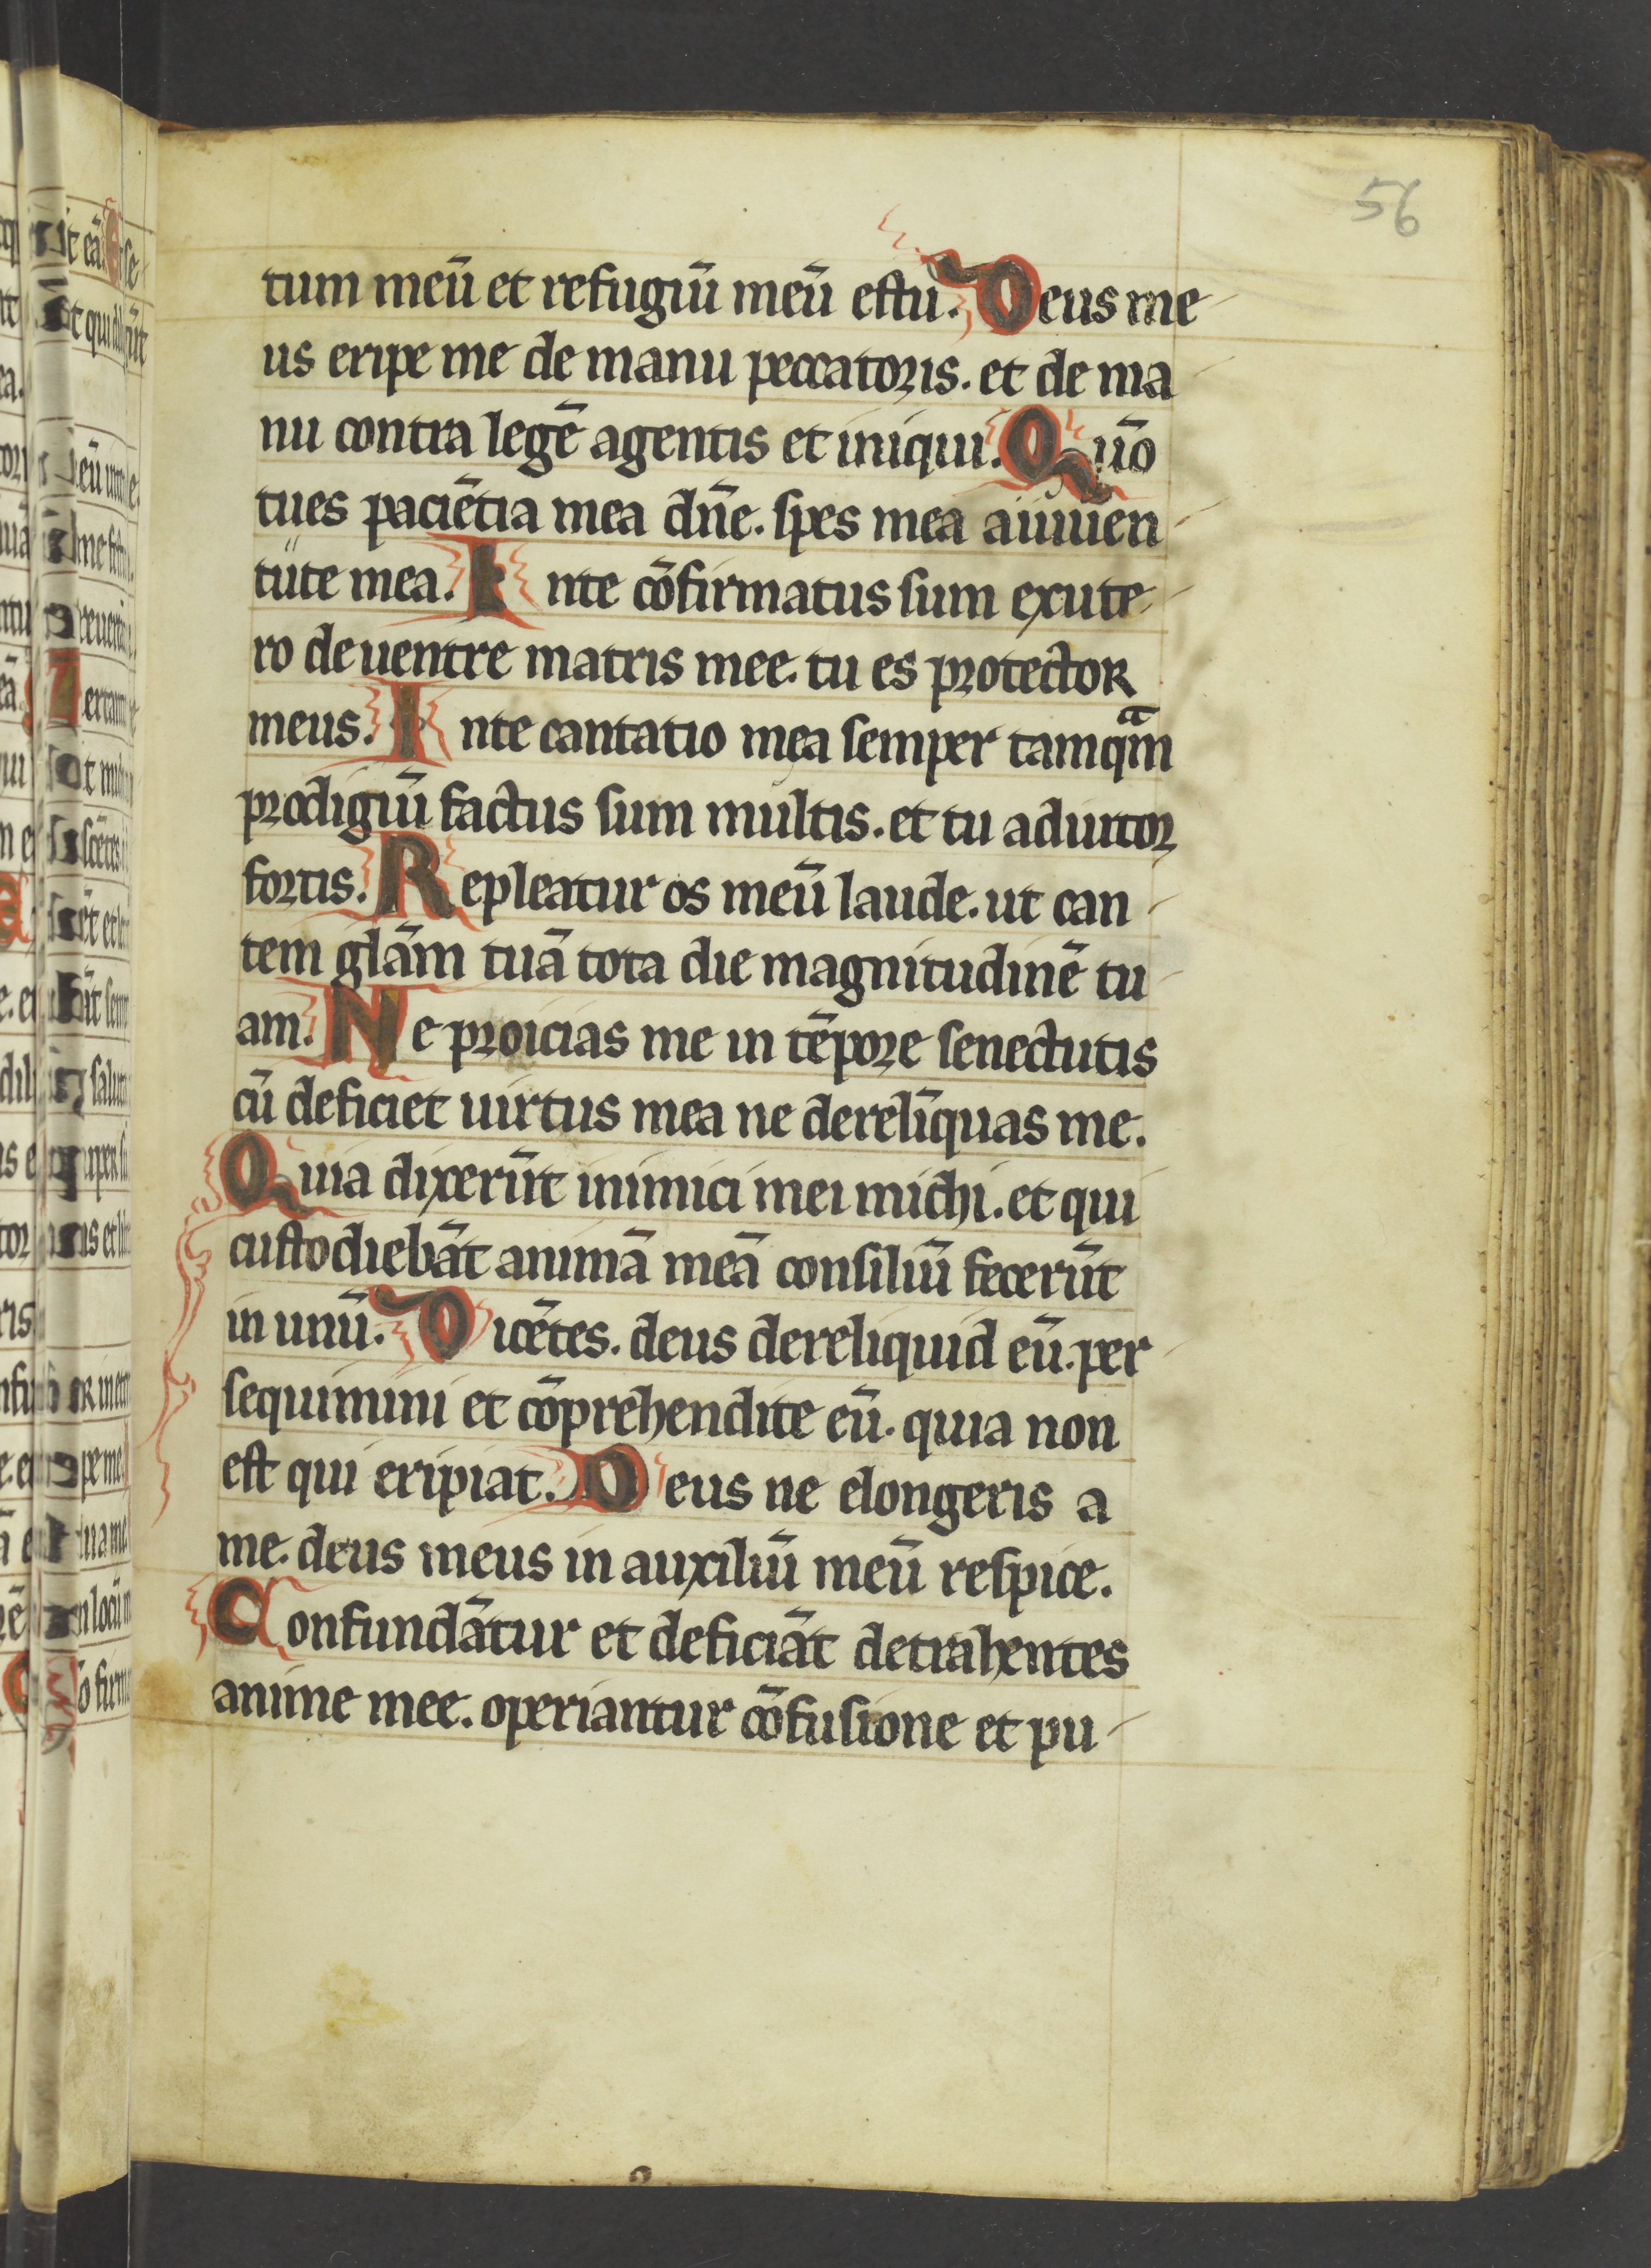 56
tum meū et refugiū meū estu. Deus me
us eripe me de manu peccatoris. et de ma
nu contra legē agentis et iniqui. Qūo
tues paciētia mea dn̄e. spes mea aiuuen
tute mea. Inte cōfirmatus sum exute
ro deuentre matris mee. tu es protector
meus. Inte cantatio mea semper tamqᵃm
prodigiū factus sum multis. et tu adiutor
fortis. Repleatur os meū laude. ut can
tem glām tuā tota die magnitudinē tu
am. Ne proicias me in tēpore senectutis
cū deficiet uirtus mea ne derelīquas me.
Quia dixerūt inimici mei michi. et qui
custodiebāt animā meā consiliū fecerūt
in unū. Dicētes. deus dereliquid eū. per
sequimini et cōprehendite eū. quia non
est qui eripiat. Deus ne elongeris a
me. deus meus in auxiliū meū respice.
Confundātur et deficiāt detrahentes
anime mee. operiantur cōfusione et pu